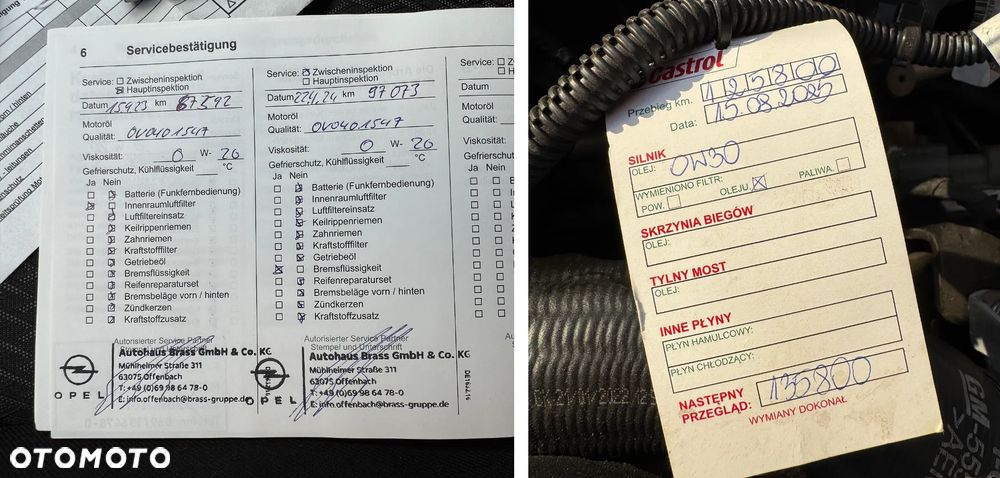 6 Servicebestätigung
Service: Zwischeninspektion
Hauptinspektion
Datum 15.9.23 km 67292
Motoröl
Qualität: OV0401547
Viskosität: 0 W- 20
Gefrierschutz, Kühlflüssigkeit °C
Ja Nein
Batterie (Funkfernbedienung)
Innenraumluftfilter
Luftfiltereinsatz
Keilrippenriemen
Zahnriemen
Kraftstofffilter
Getriebeöl
Bremsflüssigkeit
Reifenreparaturset
Bremsbeläge vorn / hinten
Zündkerzen
Kraftstoffzusatz
Autorisierter Service Partner
Stempel und Unterschrift
Autohaus Brass GmbH & Co. KG
Mühlheimer Straße 311
63075 Offenbach
T: +49 (0)69 98 64 78-0
E: info.offenbach@brass-gruppe.de
OPEL
Service: Zwischeninspektion
Hauptinspektion
Datum 22.4.24 km 97073
Motoröl
Qualität: OV0401547
Viskosität: 0 W- 20
Gefrierschutz, Kühlflüssigkeit °C
Ja Nein
Batterie (Funkfernbedienung)
Innenraumluftfilter
Luftfiltereinsatz
Keilrippenriemen
Zahnriemen
Kraftstofffilter
Getriebeöl
Bremsflüssigkeit
Reifenreparaturset
Bremsbeläge vorn / hinten
Zündkerzen
Kraftstoffzusatz
Autorisierter Service Partner
Stempel und Unterschrift
Autohaus Brass GmbH & Co. KG
Mühlheimer Straße 311
63075 Offenbach
T: +49 (0)69 98 64 78-0
E: info.offenbach@brass-gruppe.de
OPEL
Service:
Datum
Motoröl
Qualität:
Viskosität:
Gefrierschutz
Ja Nein
OTOMOTO
Castrol
Przebieg km. 125800
Data: 15.08.2025
SILNIK
OLEJ: 0W30
WYMIENIONO FILTR:
POW. OLEJU. PALIWA.
SKRZYNIA BIEGÓW
OLEJ:
TYLNY MOST
OLEJ:
INNE PŁYNY
PŁYN HAMULCOWY:
PŁYN CHŁODZĄCY:
NASTĘPNY
PRZEGLĄD: 135800
WYMIANY DOKONAŁ